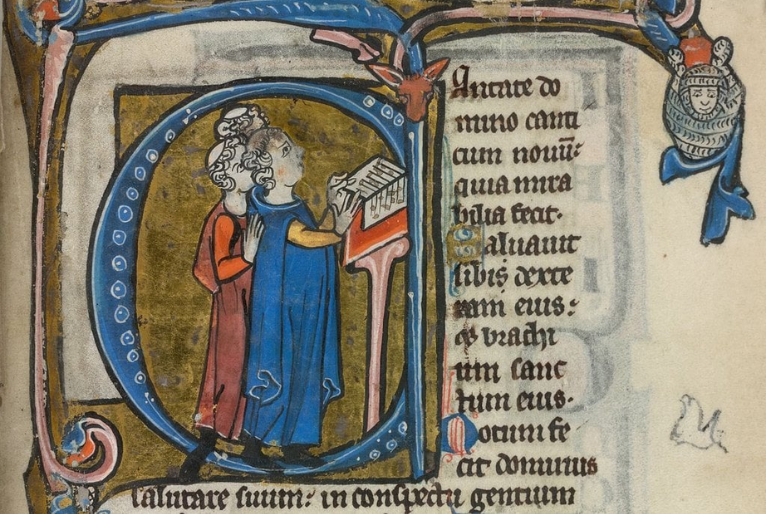 Cantate do
mino canti
cum nouū:
quia mira
bilia fecit.
Saluauit
sibi dexte
ram eius:
et brachi
um sanc
tum eius.
Notum fe
cit dominus
salutare suum: in conspectu gentium